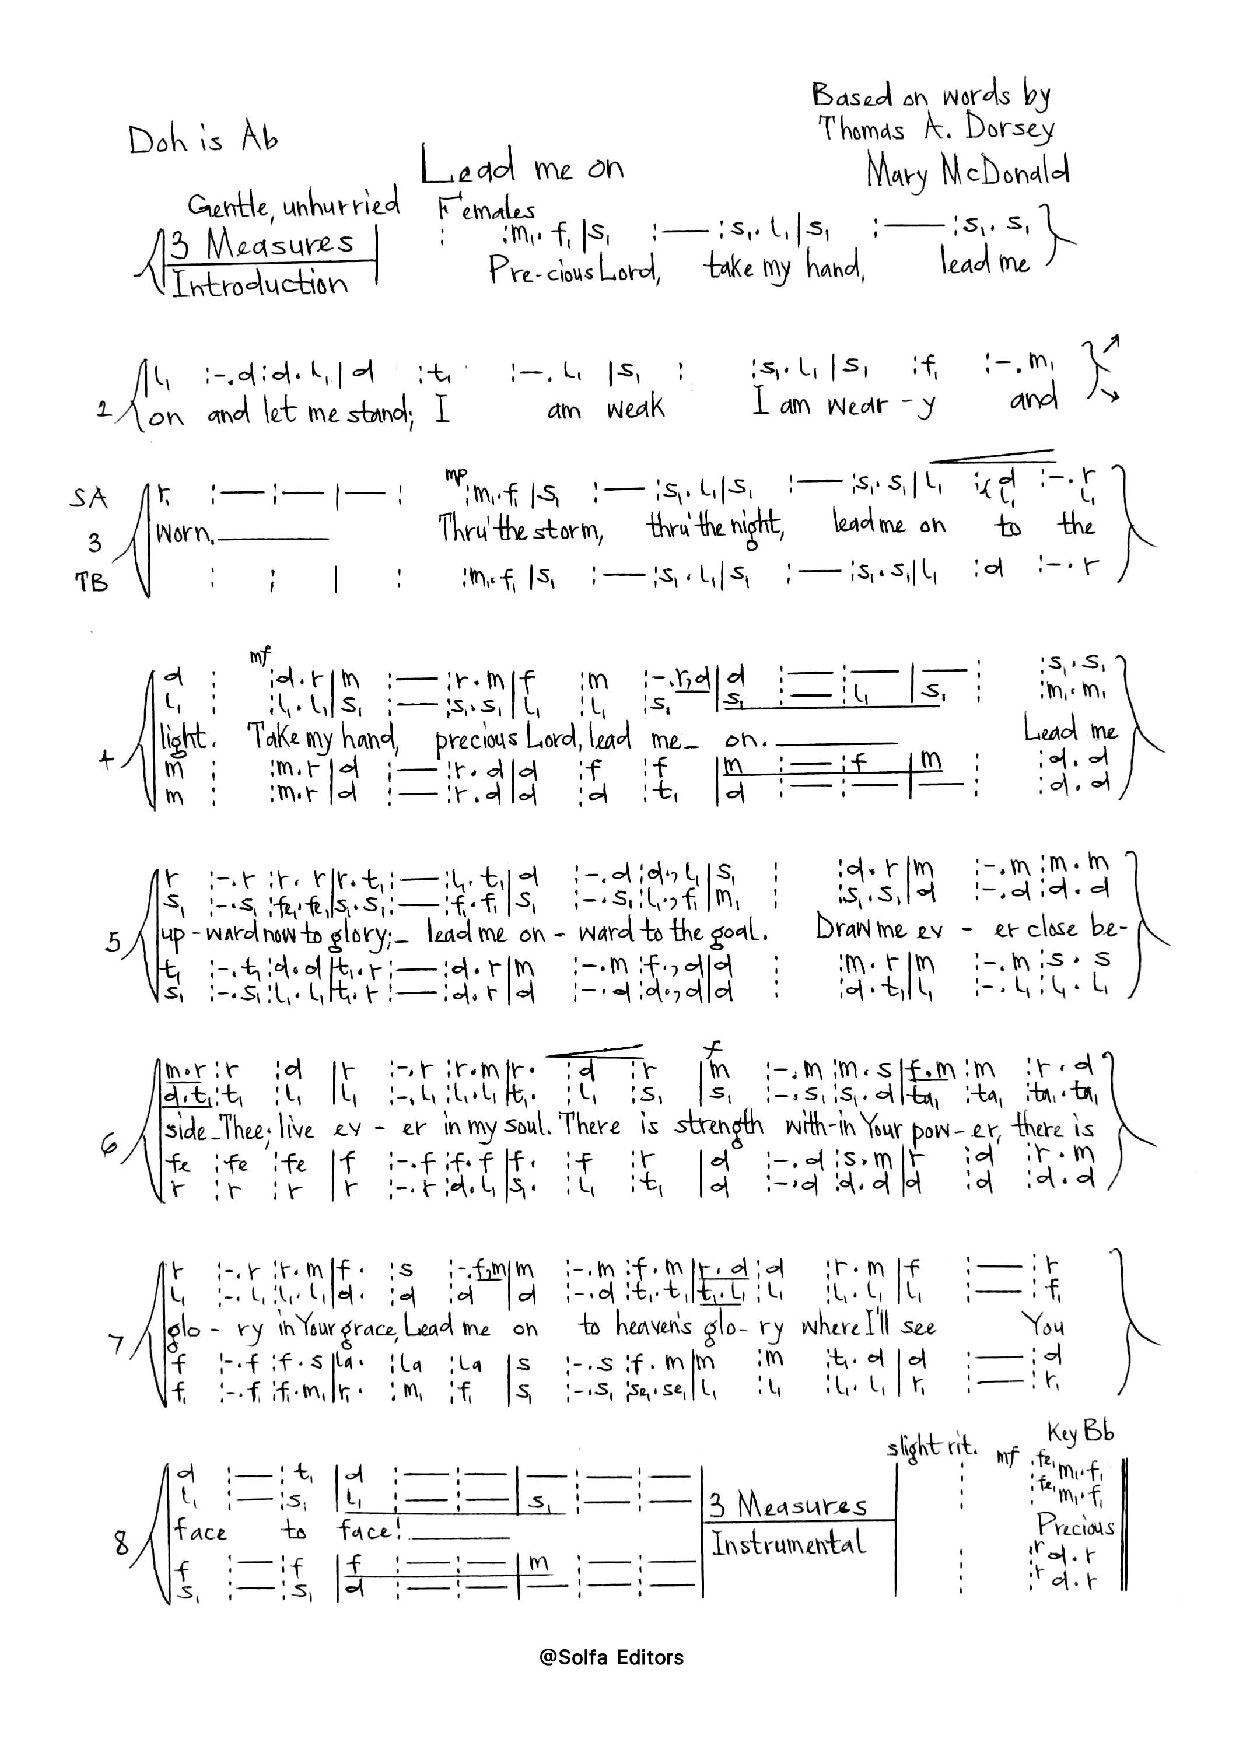 Based on words by
Doh is Ab
Thomas A. Dorsey
Lead me on
Mary McDonald
Gentle, unhurried
Females
3 Measures
Introduction
: :m₁. f₁ |s₁ :— :s₁. l₁|s₁ :— :s₁. s₁
Pre-cious Lord, take my hand, lead me
2
l₁ :-.d:d. l₁|d :t₁ :-. l₁ |s₁ : :s₁. l₁|s₁ :f₁ :-. m₁
on and let me stand; I am weak I am wear-y and
SA
3
TB
r₁ :— :— |— :
mp
:m₁.f₁ |s₁ :— :s₁. l₁|s₁ :— :s₁. s₁|l₁ :d :-. r
l₁ l₁
Worn. Thru' the storm, thru' the night, lead me on to the
: : | : :m₁. f₁ |s₁ :— :s₁. l₁|s₁ :— :s₁. s₁|l₁ :d :-. r
4
mf
d : :d.r|m :— :r.m|f :m :-.r,d|d :— :— |— : :s₁. s₁
l₁ : :l₁. l₁|s₁ :— :s₁. s₁|l₁ :l₁ :s₁ |s₁ :— :l₁ |s₁ : :m₁. m₁
light. Take my hand, precious Lord, lead me_ on. Lead me
m : :m.r|d :— :r.d|d :f :f |m :— :f |m : :d.d
m : :m.r|d :— :r.d|d :d :t₁ |d :— :— |— : :d.d
5
r :-.r :r. r|r.t₁:— :l₁. t₁|d :-.d:d., l₁|s₁ : :d.r|m :-.m :m.m
s₁ :-.s₁ :fe₁.fe₁|s₁.s₁:— :f₁.f₁|s₁ :-.s₁:l₁.,f₁|m₁ : :s₁.s₁|d :-.d:d.d
up-ward now to glory;_ lead me on-ward to the goal. Draw me ev-er close be-
t₁ :-.t₁:d.d|t₁.r:— :d.r|m :-.m :f.,d|d : :m.r|m :-.m:s.s
s₁ :-.s₁:l₁. l₁|t₁.r:— :d.r|d :-.d:d.,d|d : :d.t₁|l₁ :-.l₁:l₁. l₁
6
f
m.r:r :d |r :-.r :r.m|r. :d :r |m :-.m :m.s|f.m :m :r.d
d.t₁:t₁ :l₁ |l₁ :-.l₁ :l₁.l₁|t₁. :l₁ :s₁ |s₁ :-.s₁ :s₁.d|ta₁ :ta₁ :ta₁.ta₁
side_Thee; live ev-er in my soul. There is strength with-in Your pow-er, there is
fe :fe :fe |f :-.f :f.f|f. :f :r |d :-.d :s.m|r :d :r.m
r :r :r |r :-.r :d.l₁|s₁. :l₁ :t₁ |d :-.d :d.d|d :d :d.d
7
r :-.r :r.m|f. :s :-.f,m|m :-.m :f.m|r.d :d :r.m|f :— :r
l₁ :-.l₁ :l₁.l₁|d. :d :d |d :-.d :t₁.t₁|t₁.l₁ :l₁ :l₁.l₁|l₁ :— :f₁
glo-ry in Your grace, Lead me on to heaven's glo-ry where I'll see You
f :-.f :f.s|la. :la :la |s :-.s :f.m|m :m :t₁.d|d :— :d
f₁ :-.f₁ :f₁.m₁|r₁. :m₁ :f₁ |s₁ :-.s₁ :se₁.se₁|l₁ :l₁ :l₁.l₁|r₁ :— :r₁
Key Bb
slight rit. mf
8
d :— :t₁ |d :— :— |— :— :— : :fe₁m₁.f₁
l₁ :— :s₁ |l₁ :— :— |s₁ :— :— : :fe₁m₁.f₁
3 Measures
Instrumental
face to face! Precious
f :— :f |f :— :— |m :— :— : :rd.r
s₁ :— :s₁ |d :— :— |— :— :— : :rd.r
@Solfa Editors